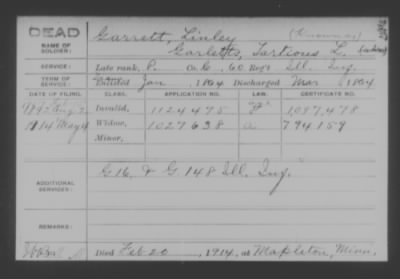 DEAD
Garrett, Linley
NAME OF SOLDIER:
Garletts, Tertious L.
SERVICE:
Late rank, P. Co. G, 60 Reg't Ill. Inf.
TERM OF SERVICE:
Enlisted Jan , 1864 Discharged Mar , 1864
DATE OF FILING. CLASS. APPLICATION NO. LAW. CERTIFICATE NO.
Invalid, 1124475 1097478
1914 May 4 Widow, 1027638 a 794159
Minor,
ADDITIONAL SERVICES:
G 16, & G 148 Ill. Inf.
REMARKS:
Died Feb 20 , 1914, at Mapleton, Minn.